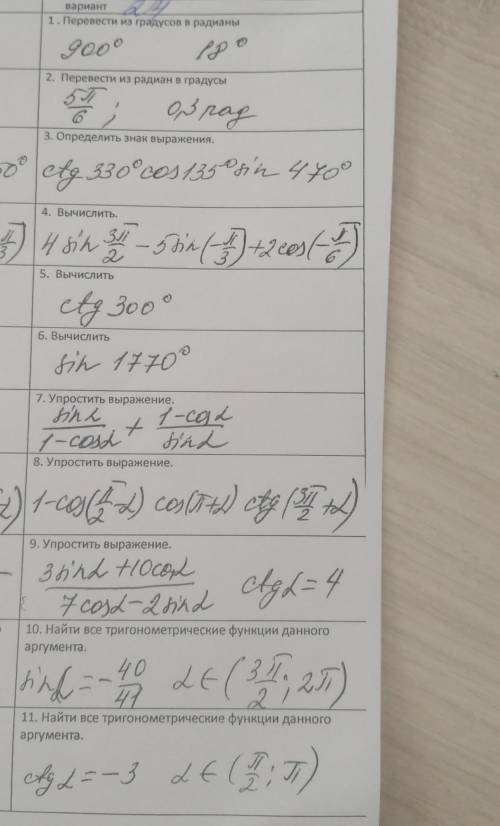 вариант 24
1. Перевести из градусов в радианы
900° 18°
2. Перевести из радиан в градусы
5π/6; 0,3 рад
3. Определить знак выражения.
0° ctg 330° cos 135° sin 470°
4. Вычислить.
π/3) 4 sin 3π/2 − 5 sin(−π/3) + 2 cos(−π/6)
5. Вычислить
ctg 300°
6. Вычислить
sin 1770°
7. Упростить выражение.
sinα/(1−cosα) + (1−cosα)/sinα
8. Упростить выражение.
α) 1−cos(π/2−α) cos(π+α) ctg(3π/2+α)
9. Упростить выражение.
(3sinα+10cosα)/(7cosα−2sinα) ctgα=4
10. Найти все тригонометрические функции данного
аргумента.
sinα=−40/41 α∈(3π/2; 2π)
11. Найти все тригонометрические функции данного
аргумента.
ctgα=−3 α∈(π/2; π)